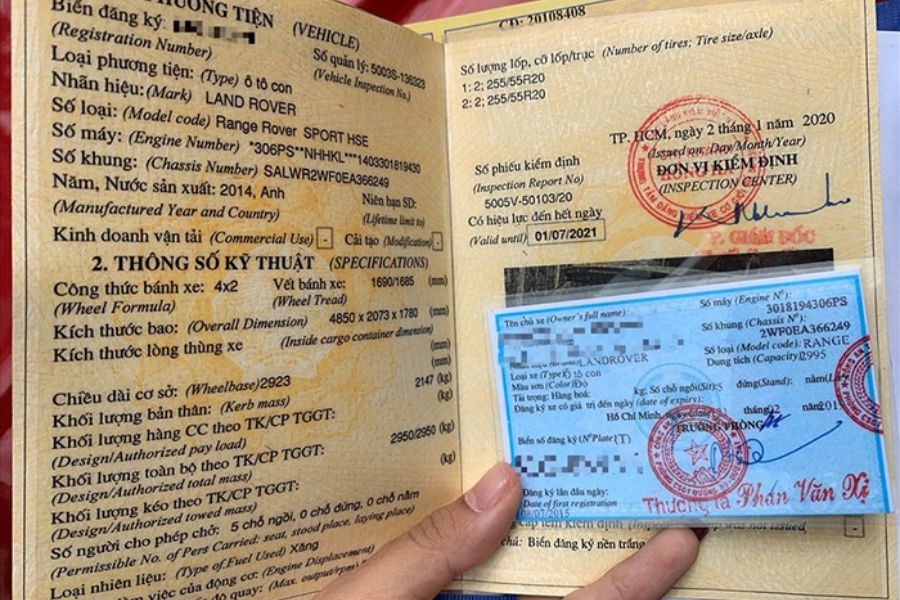 PHƯƠNG TIỆN (VEHICLE)
Biển đăng ký:
(Registration Number)
Số quản lý: 5003S-136323
(Vehicle Inspection No.)
Loại phương tiện: (Type) ô tô con
Nhãn hiệu: (Mark) LAND ROVER
Số loại: (Model code) Range Rover SPORT HSE
Số máy: (Engine Number) *306PS**NHHKL***1403301819430
Số khung: (Chassis Number) SALWR2WF0EA366249
Năm, Nước sản xuất: 2014, Anh
(Manufactured Year and Country)
Niên hạn SD:
(Lifetime limit to)
Kinh doanh vận tải (Commercial Use) - Cải tạo (Modification) -
2. THÔNG SỐ KỸ THUẬT (SPECIFICATIONS)
Công thức bánh xe: 4x2 Vết bánh xe: 1690/1685 (mm)
(Wheel Formula) (Wheel Tread)
Kích thước bao: (Overall Dimension) 4850 x 2073 x 1780 (mm)
Kích thước lòng thùng xe (Inside cargo container dimension)
(mm)
Chiều dài cơ sở: (Wheelbase) 2923 (mm)
Khối lượng bản thân: (Kerb mass) 2147 (kg)
Khối lượng hàng CC theo TK/CP TGGT: (kg)
(Design/Authorized pay load)
Khối lượng toàn bộ theo TK/CP TGGT: 2950/2950 (kg)
(Design/Authorized total mass)
Khối lượng kéo theo TK/CP TGGT: (kg)
(Design/Authorized towed mass)
Số người cho phép chở: 5 chỗ ngồi, 0 chỗ đứng, 0 chỗ nằm
(Permissible No. of Pers Carried: seat, stood place, laying place)
Loại nhiên liệu: (Type of Fuel Used) Xăng
làm việc của động cơ: (Engine Displacement)
độ quay: (Max. output/rpm)
CD: 20108408
Số lượng lốp, cỡ lốp/trục (Number of tires; Tire size/axle)
1: 2; 255/55R20
2: 2; 255/55R20
TP. HCM, ngày 2 tháng 1 năm 2020
(Issued on: Day/Month/Year)
Số phiếu kiểm định
(Inspection Report No)
5005V-50103/20
ĐƠN VỊ KIỂM ĐỊNH
(INSPECTION CENTER)
Có hiệu lực đến hết ngày
(Valid until) 01/07/2021
P. GIÁM ĐỐC
Tên chủ xe (Owner's full name):
Số máy (Engine Nº):
3018194306PS
Số khung (Chassis Nº):
2WF0EA366249
LANDROVER
Số loại (Model code): RANGE
Loại xe (Type) ô tô con
Dung tích (Capacity) 2995
Màu sơn (Color) Đỏ
Tải trọng: Hàng hoá: kg; Số chỗ ngồi (Sit): 5 đứng (Stand): nằm
Đăng ký xe có giá trị đến ngày (date of expiry):
Hồ Chí Minh, ngày tháng 02 năm
TRƯỞNG PHÒNG
Biển số đăng ký (Nº Plate)
Đăng ký lần đầu ngày:
Date of first registration
08/07/2015
Thượng tá Phan Văn Xị
cấp tem kiểm định (Inspec was not issued) -
chú: Biển đăng ký nền trắng